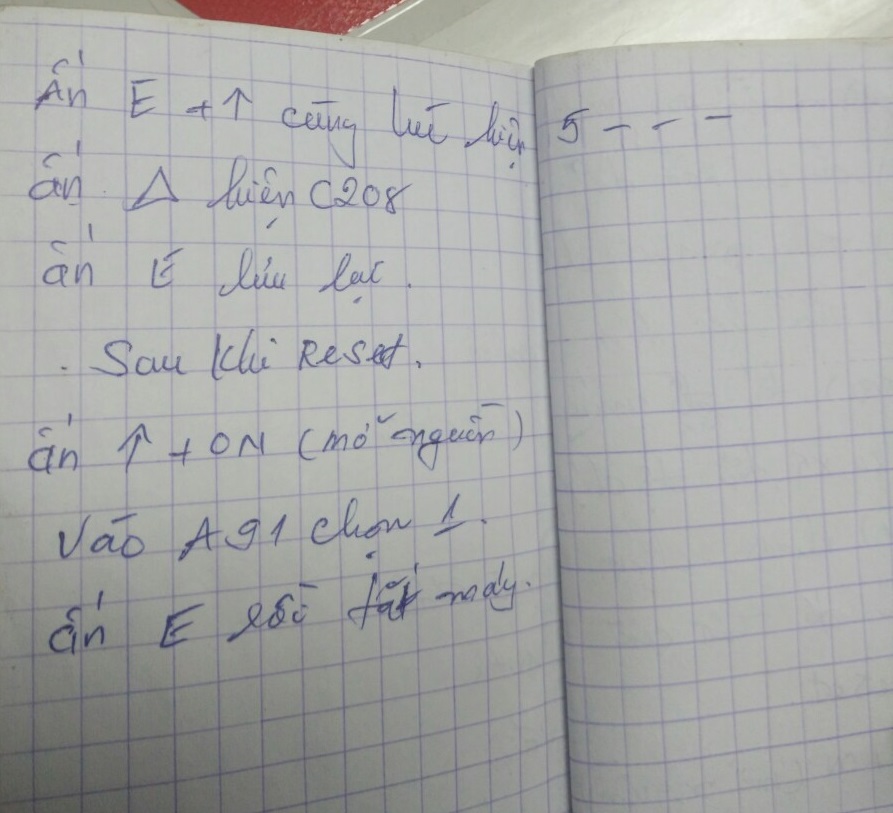 Ấn E + ↑ cùng lúc hiện 5 - - -
ấn △ hiện C208
ấn E lưu lại.
. Sau khi Reset.
ấn ↑ + ON (mở nguồn)
Vào A91 chọn 1.
ấn E rồi tắt máy.